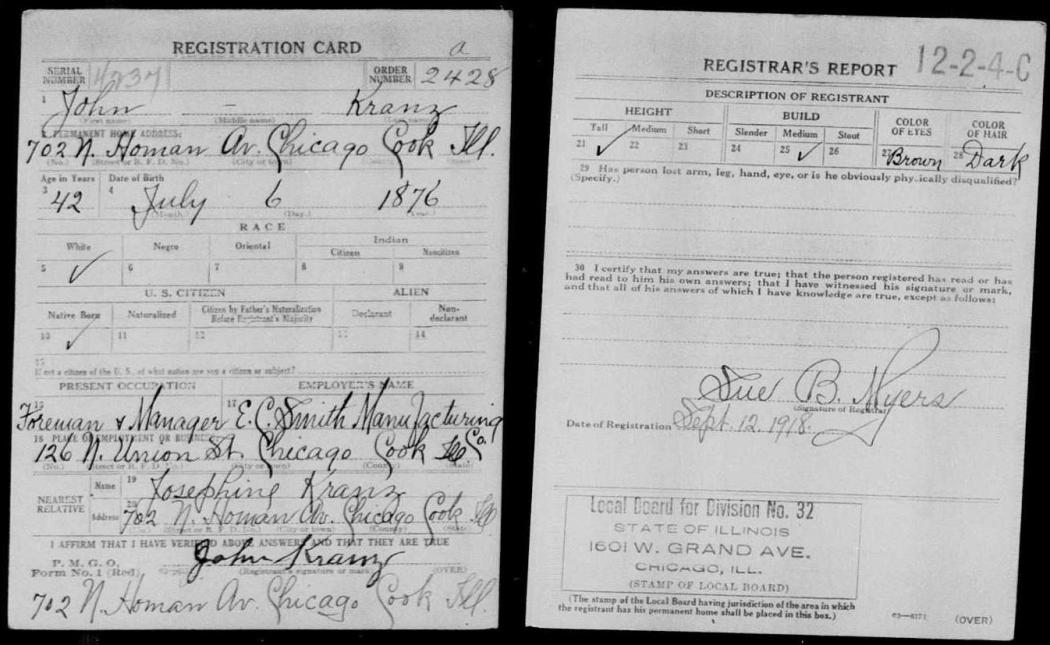 REGISTRATION CARD a
SERIAL NUMBER ORDER NUMBER 2428
1 John – Kranz
(First name) (Middle name) (Last name)
2 PERMANENT HOME ADDRESS:
702 N. Homan Av. Chicago Cook Ill.
(No.) (Street or R. F. D. No.) (City or town) (County) (State)
Age in Years Date of Birth
3 42 4 July 6 1876
(Month.) (Day.) (Year.)
RACE
White Negro Oriental Indian
Citizen Noncitizen
5 ✓ 6 7 8 9
U. S. CITIZEN ALIEN
Native Born Naturalized Citizen by Father's Naturalization Before Registrant's Majority Declarant Non-declarant
10 ✓ 11 12 13 14
15
If not a citizen of the U. S., of what nation are you a citizen or subject?
PRESENT OCCUPATION EMPLOYER'S NAME
16 Foreman & Manager 17 E. C. Smith Manufacturing Co.
18 PLACE OF EMPLOYMENT OR BUSINESS
126 N. Union St. Chicago Cook Ill
(No.) (Street or R. F. D. No.) (City or town) (County) (State)
NEAREST RELATIVE Name 19 Josephine Kranz
Address 20 702 N. Homan Av. Chicago Cook Ill
(No.) (Street or R. F. D. No.) (City or town) (County) (State)
I AFFIRM THAT I HAVE VERIFIED ABOVE ANSWERS AND THAT THEY ARE TRUE
P. M. G. O.
Form No. 1 (Red) John Kranz
(Registrant's signature or mark) (OVER)
702 N. Homan Av. Chicago Cook Ill.
REGISTRAR'S REPORT 12-2-4-C
DESCRIPTION OF REGISTRANT
HEIGHT BUILD COLOR OF EYES COLOR OF HAIR
Tall Medium Short Slender Medium Stout
21 ✓ 22 23 24 25 ✓ 26 27 Brown 28 Dark
29 Has person lost arm, leg, hand, eye, or is he obviously physically disqualified?
(Specify.)
30 I certify that my answers are true; that the person registered has read or has
had read to him his own answers; that I have witnessed his signature or mark,
and that all of his answers of which I have knowledge are true, except as follows:
Sue B. Myers
(Signature of Registrar)
Date of Registration Sept. 12, 1918.
Local Board for Division No. 32
STATE OF ILLINOIS
1601 W. GRAND AVE.
CHICAGO, ILL.
(STAMP OF LOCAL BOARD)
(The stamp of the Local Board having jurisdiction of the area in which
the registrant has his permanent home shall be placed in this box.)
03—6171 (OVER)